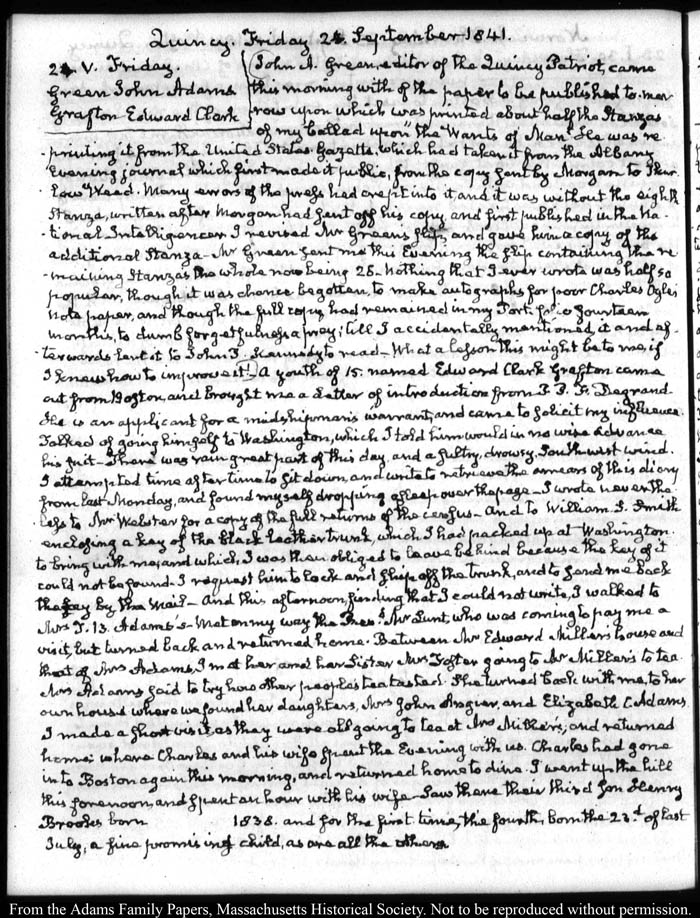 Quincy. Friday 24. September 1841.
24. V. Friday.
Green John Adams
Grafton Edward Clark
John A. Green, editor of the Quincy Patriot, came
this morning with of the paper to be published to-mor
row upon which was printed about half the Stanzas
of my ballad upon the Wants of Man. He was re
printing it from the United States Gazette, which had taken it from the Albany
Evening journal which first made it public, from the copy sent by Morgan to Thur
low Weed. Many errors of the press had crept into it and it was without the eighth
Stanza, written after Morgan had sent off his copy, and first published in the Na
tional Intelligencer. I revised Mr Green's slip, and gave him a copy of the
additional Stanza. Mr Green sent me this Evening the slip containing the re
maining Stanzas the whole now being 25. Nothing that I ever wrote was half so
popular, though it was chance begotten, to make autographs for poor Charles Ogle's
note paper, and though the full copy, had remained in my Port folio fourteen
months, to dumb forgetfulness a prey; till I accidentally mentioned it and af
terwards lent it to John P. Kennedy to read—What a lesson this might be to me, if
I knew how to improve it! A youth of 15. named Edward Clark Grafton came
out from Boston, and brought me a Letter of introduction from P. P. F. Degrand
He is an applicant for a midshipman's warrant, and came to solicit my influence.
Talked of going himself to Washington, which I told him would in no wise advance
his suit—There was rain great part of this day, and a sultry, drowsy, South-west wind.
I attempted time after time to sit down, and write to retrieve the arrears of this diary
from last Monday, and found myself dropping asleep over the page—I wrote neverthe
less to Mr Webster for a copy of the full returns of the census—and to William S. Smith
enclosing a key of the black leather trunk, which I had packed up at Washington
to bring with me, and which, I was then obliged to leave behind because the key of it
could not be found. I request him to lock and ship off the trunk, and to send me back
the key by the mail—And this afternoon, finding that I could not write, I walked to
Mrs T. B. Adams's—Met on my way the Revd. Mr Lunt, who was coming to pay me a
visit, but turned back and returned home. Between Mr Edward Miller's house and
that of Mrs Adams, I met her and her Sister Mrs Foster going to Mr Miller's to tea.
Mrs Adams said to try how other people's tea tasted. She turned back with me, to her
own house where we found her daughters, Mrs John Angier, and Elizabeth C. Adams.
I made a short visit as they were all going to tea at Mrs Miller's; and returned
home: where Charles and his wife spent the Evening with us. Charles had gone
into Boston again this morning, and returned home to dine. I went up the hill
this forenoon, and spent an hour with his wife—Saw there their third Son Henry
Brooks born 1838. and for the first time, the fourth, born the 23.d of last
July, a fine promising child, as are all the others.
From the Adams Family Papers, Massachusetts Historical Society. Not to be reproduced without permission.